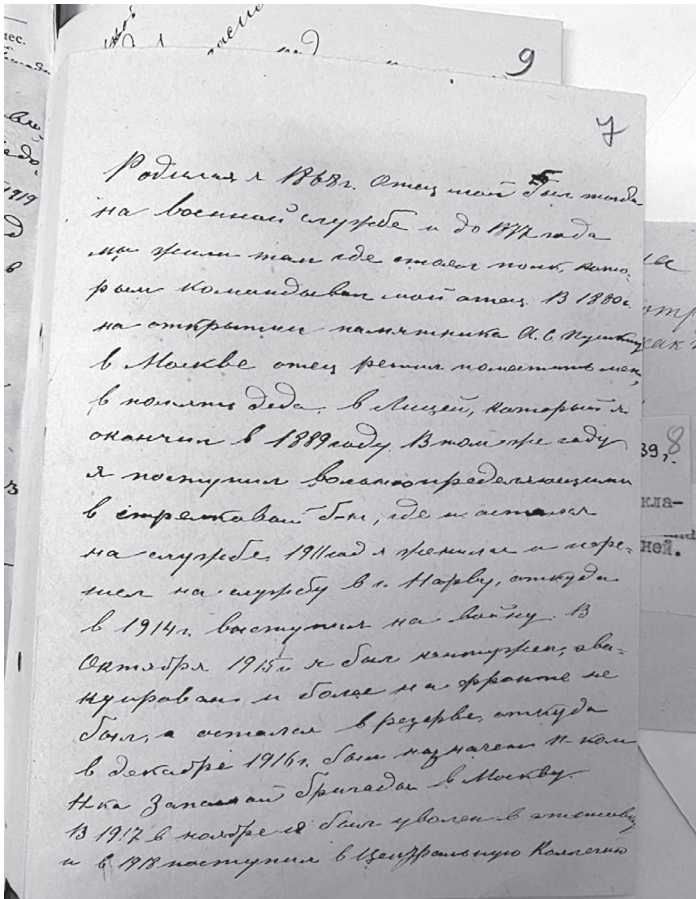 9
7
Родился я 1868г. Отец мой был тогда
на военной службе и до 1877 года
мы жили там где стоял полк, кото-
рым командывал мой отец. В 1880г.
на открытии памятника А.С. Пушкину
в Москве отец решил поместить меня,
в память деда, в Лицей, который я
окончил в 1889 году. В том же году
я поступил вольноопределяющимся
в стрелковый б-н, где и остался
на службе. 1911 год я женился и пере-
шел на службу в г. Нарву, откуда
в 1914г. выступил на войну. В
Октября 1915г. я был контужен, эва-
куирован и более на фронте не
был, а остался в резерве, откуда
в декабре 1916г. был назначен
Н-ка Запасной бригады в Москву.
В 1917 в ноябре я был уволен в отставку
и в 1918 поступил в Центральную Коллегию
нес.
1919
в
39,
8
кла-
ней.